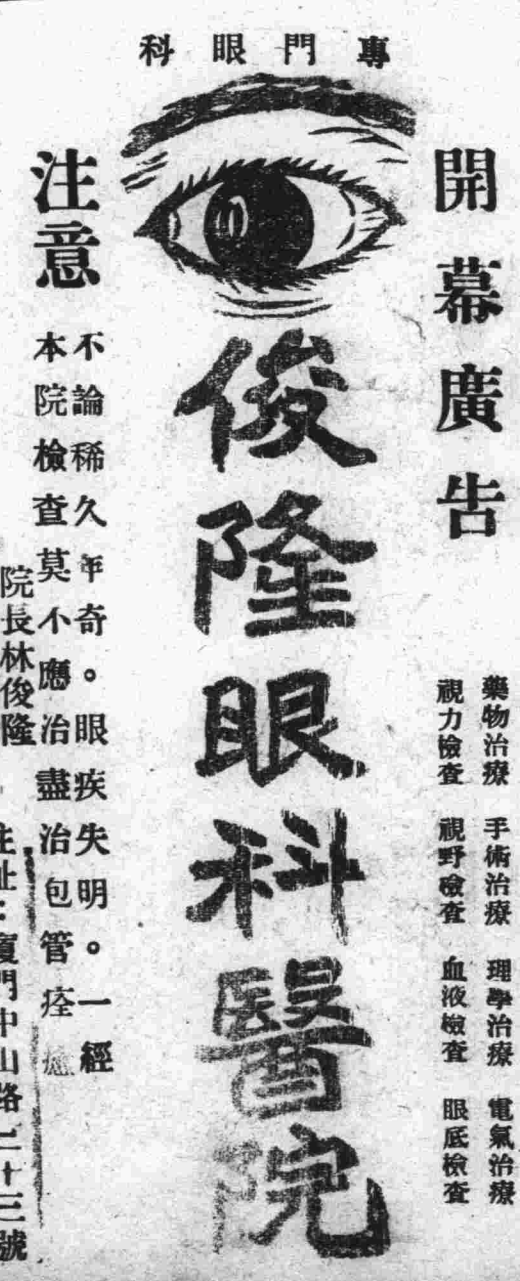 專門眼科
開幕廣告
藥物治療 手術治療 理學治療 電氣治療
視力檢查 視野檢查 血液檢查 眼底檢查
俊隆眼科醫院
注意
不論稀久年奇。眼疾失明。一經
本院檢查莫不應治盡治包管痊癒
院長林俊隆
住址：廈門中山路二十三號